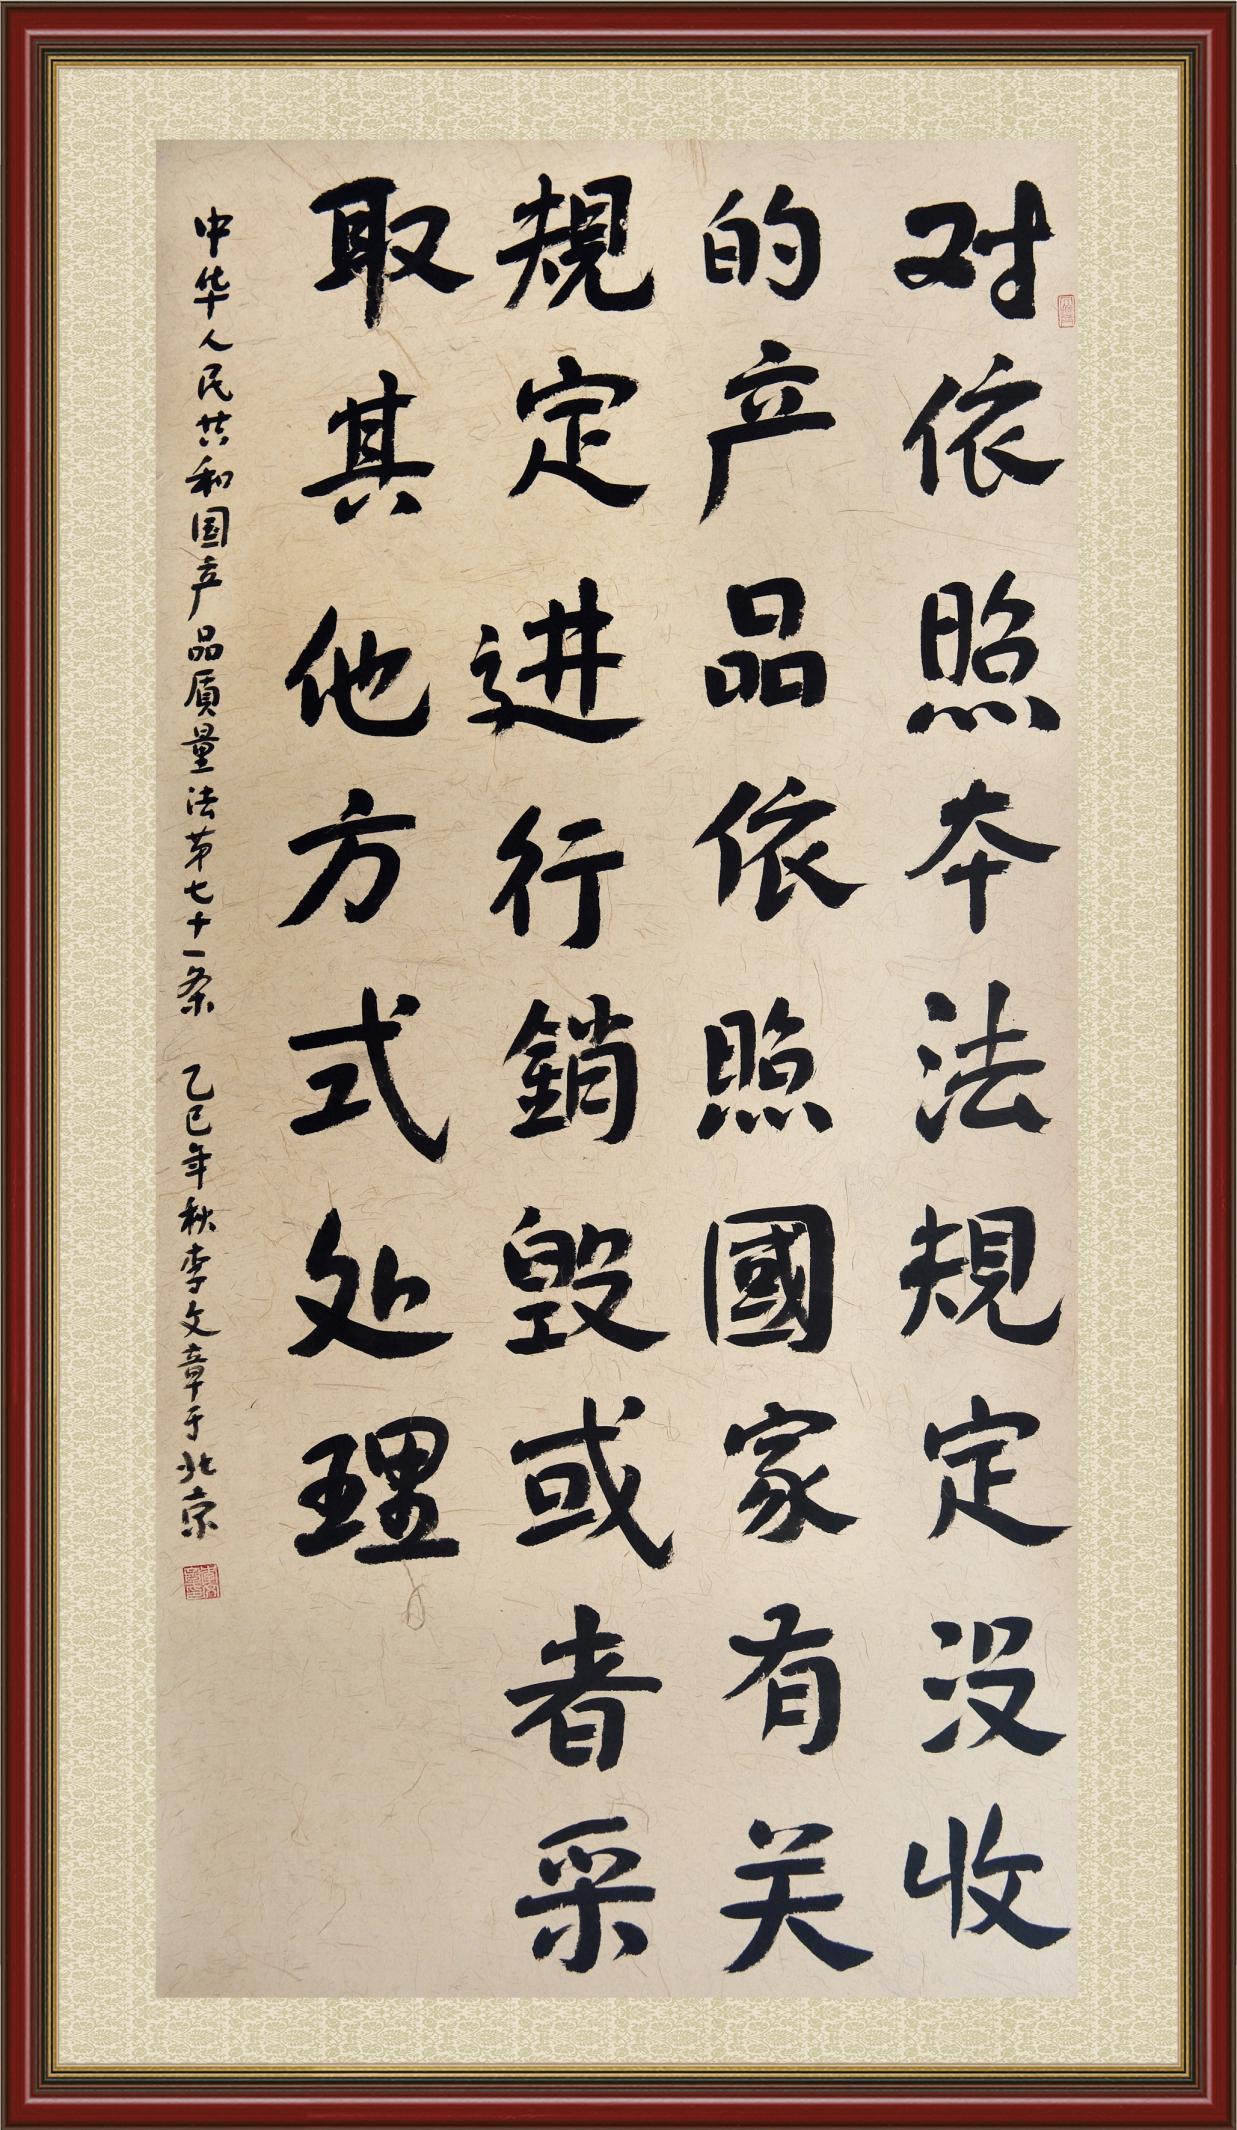 对依照本法規定没收
的产品依照國家有关
規定进行銷毁或者采
取其他方式处理
中华人民共和国产品质量法第七十一条 乙巳年秋李文章于北京